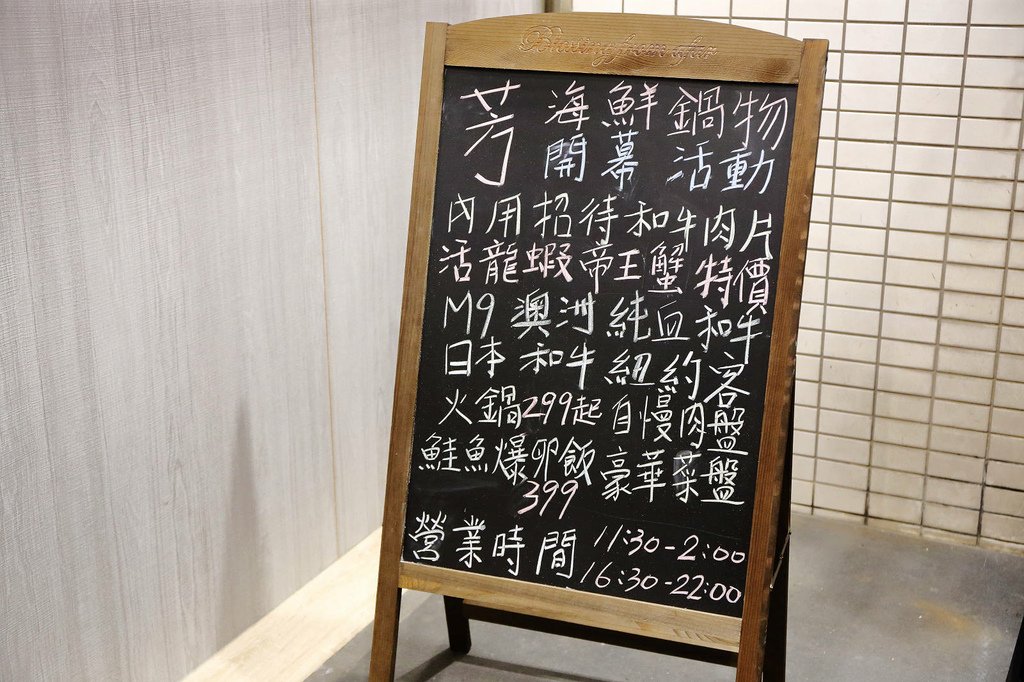 芳 海鮮鍋物
開幕活動
內用招待和牛肉片
活龍蝦帝王蟹特價
M9 澳洲純血和牛
日本和牛 紐約客
火鍋299起 自慢肉盤
鮭魚爆卵飯 豪華菜盤
399
營業時間 11:30-2:00
16:30-22:00